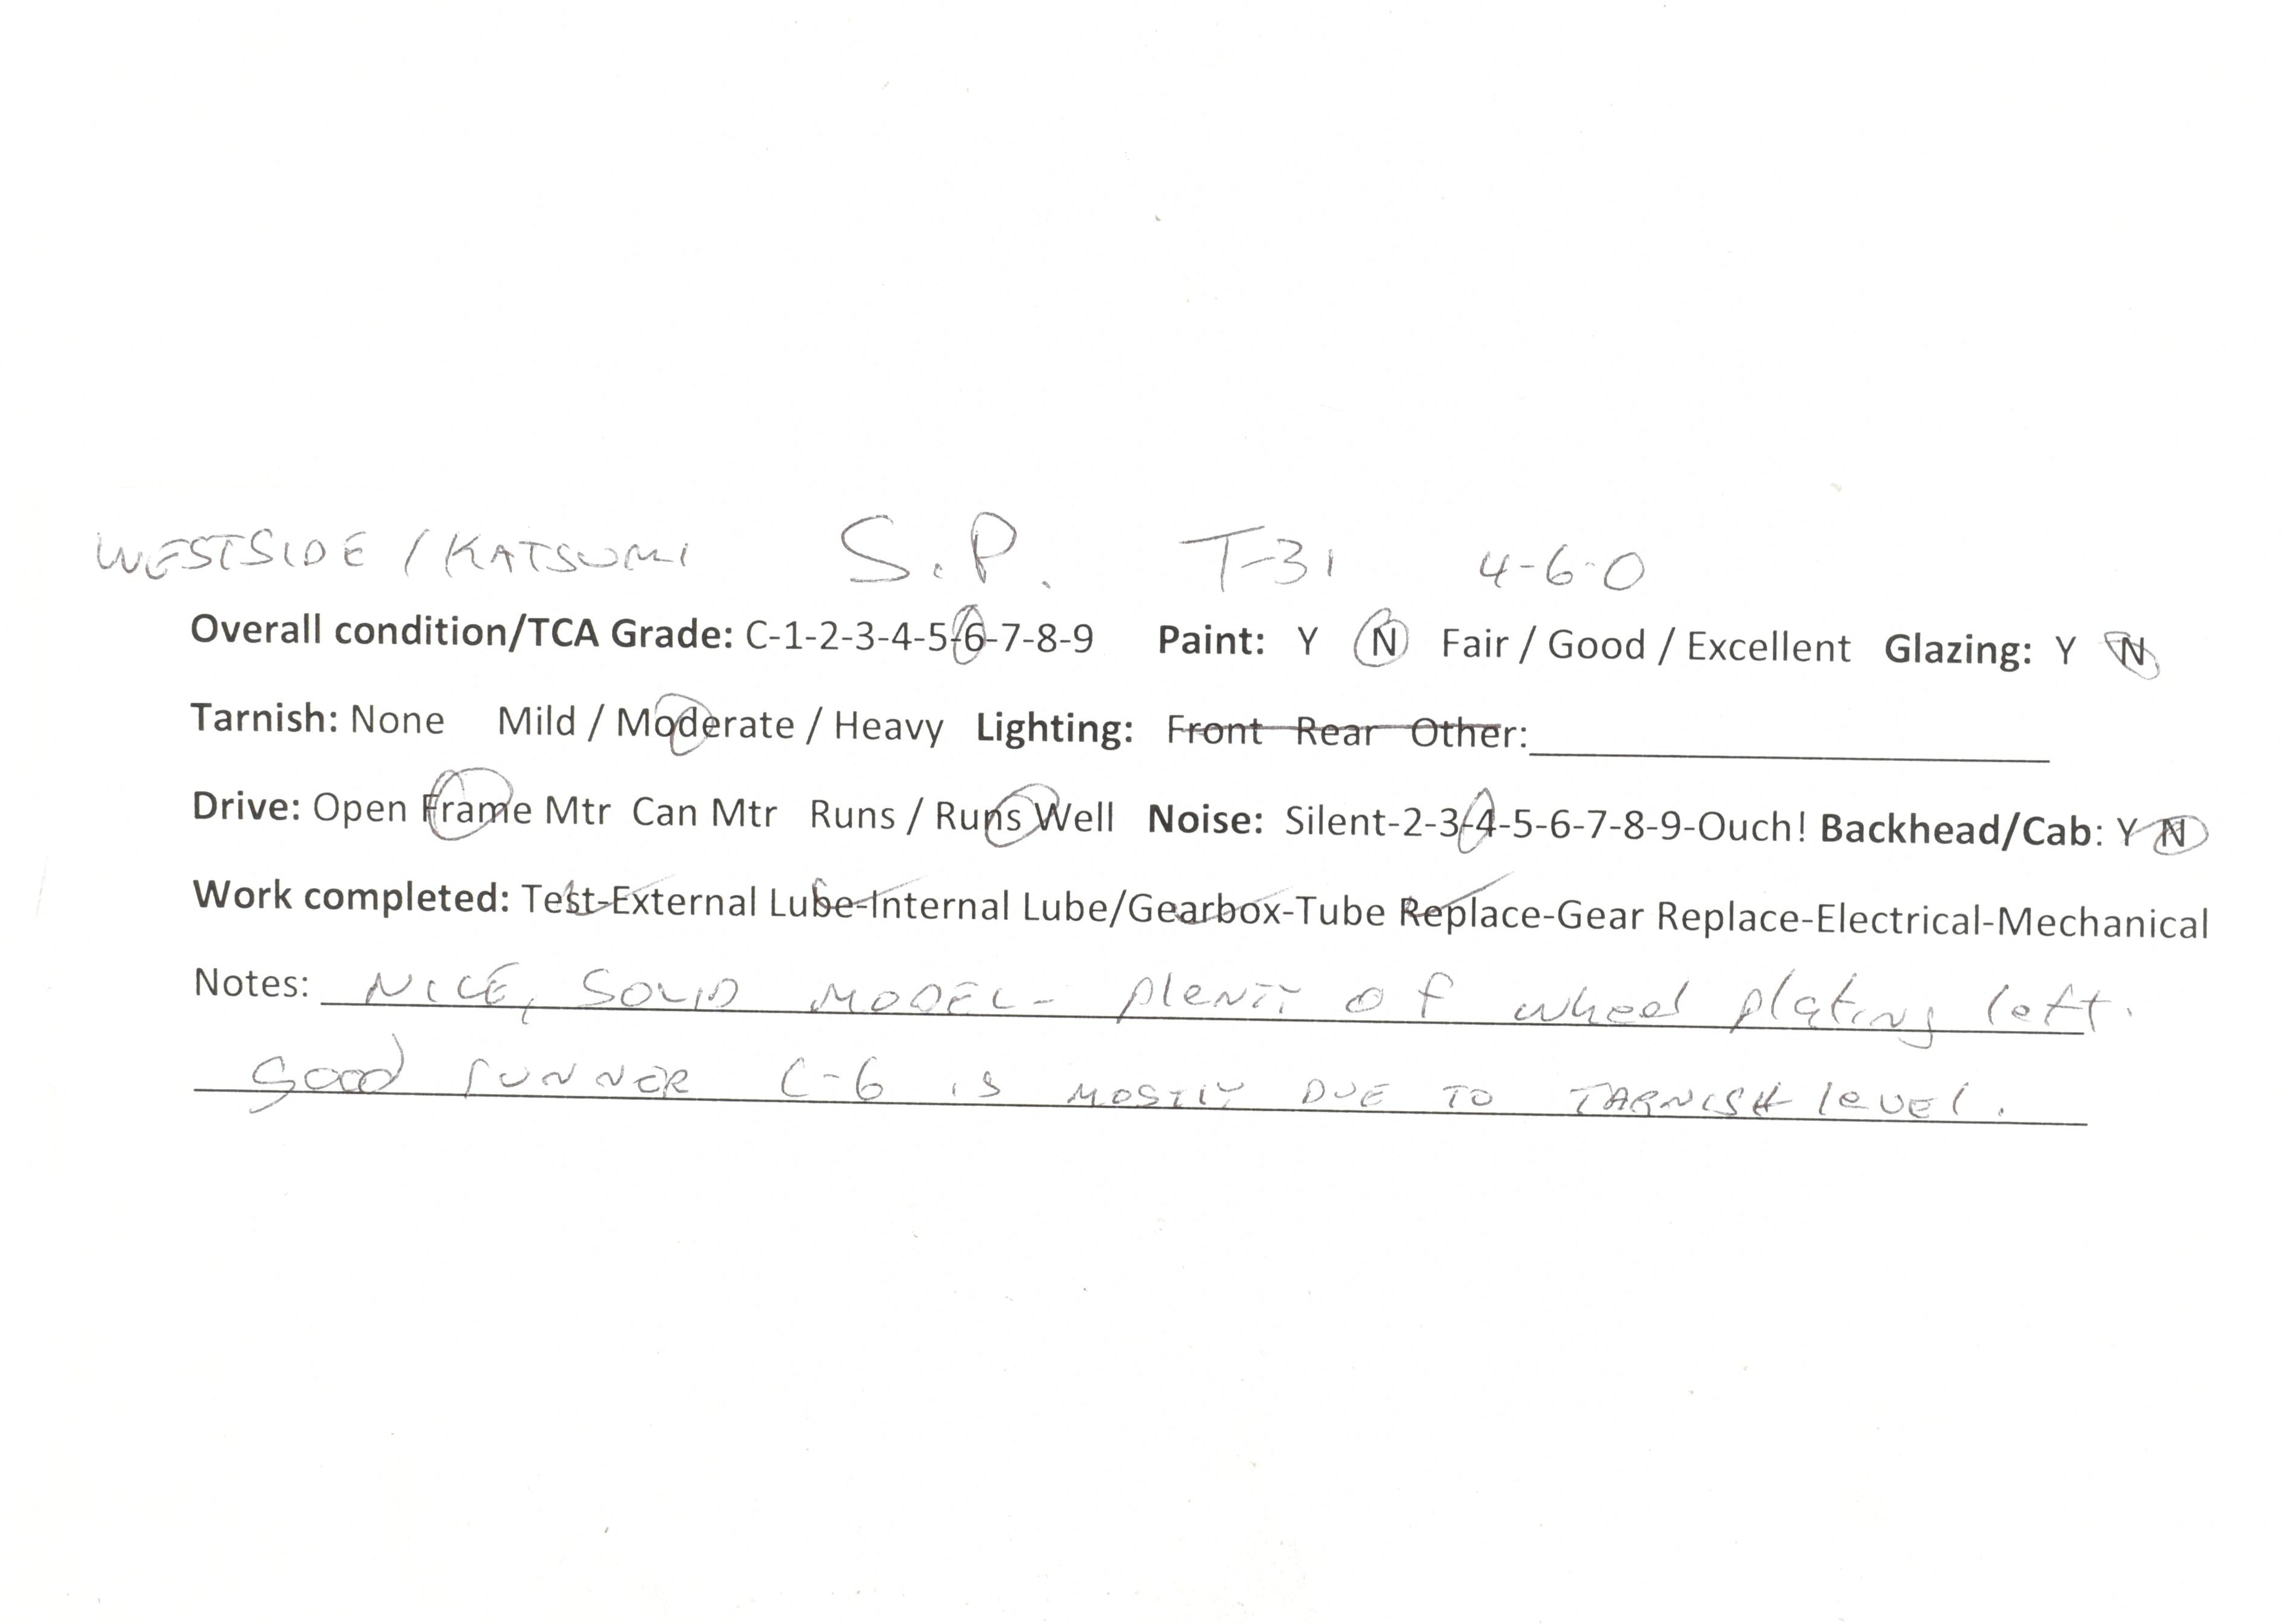 WESTSIDE / KATSUMI S.P. T-31 4-6-0
Overall condition/TCA Grade: C-1-2-3-4-5-6-7-8-9 Paint: Y N Fair / Good / Excellent Glazing: Y N
Tarnish: None Mild / Moderate / Heavy Lighting: Front Rear Other:
Drive: Open Frame Mtr Can Mtr Runs / Runs Well Noise: Silent-2-3-4-5-6-7-8-9-Ouch! Backhead/Cab: Y N
Work completed: Test-External Lube-Internal Lube/Gearbox-Tube Replace-Gear Replace-Electrical-Mechanical
Notes: NICE, SOLID MODEL - PLENTY OF wheel plating left.
Good RUNNER C-6 IS MOSTLY DUE TO TARNISH level.